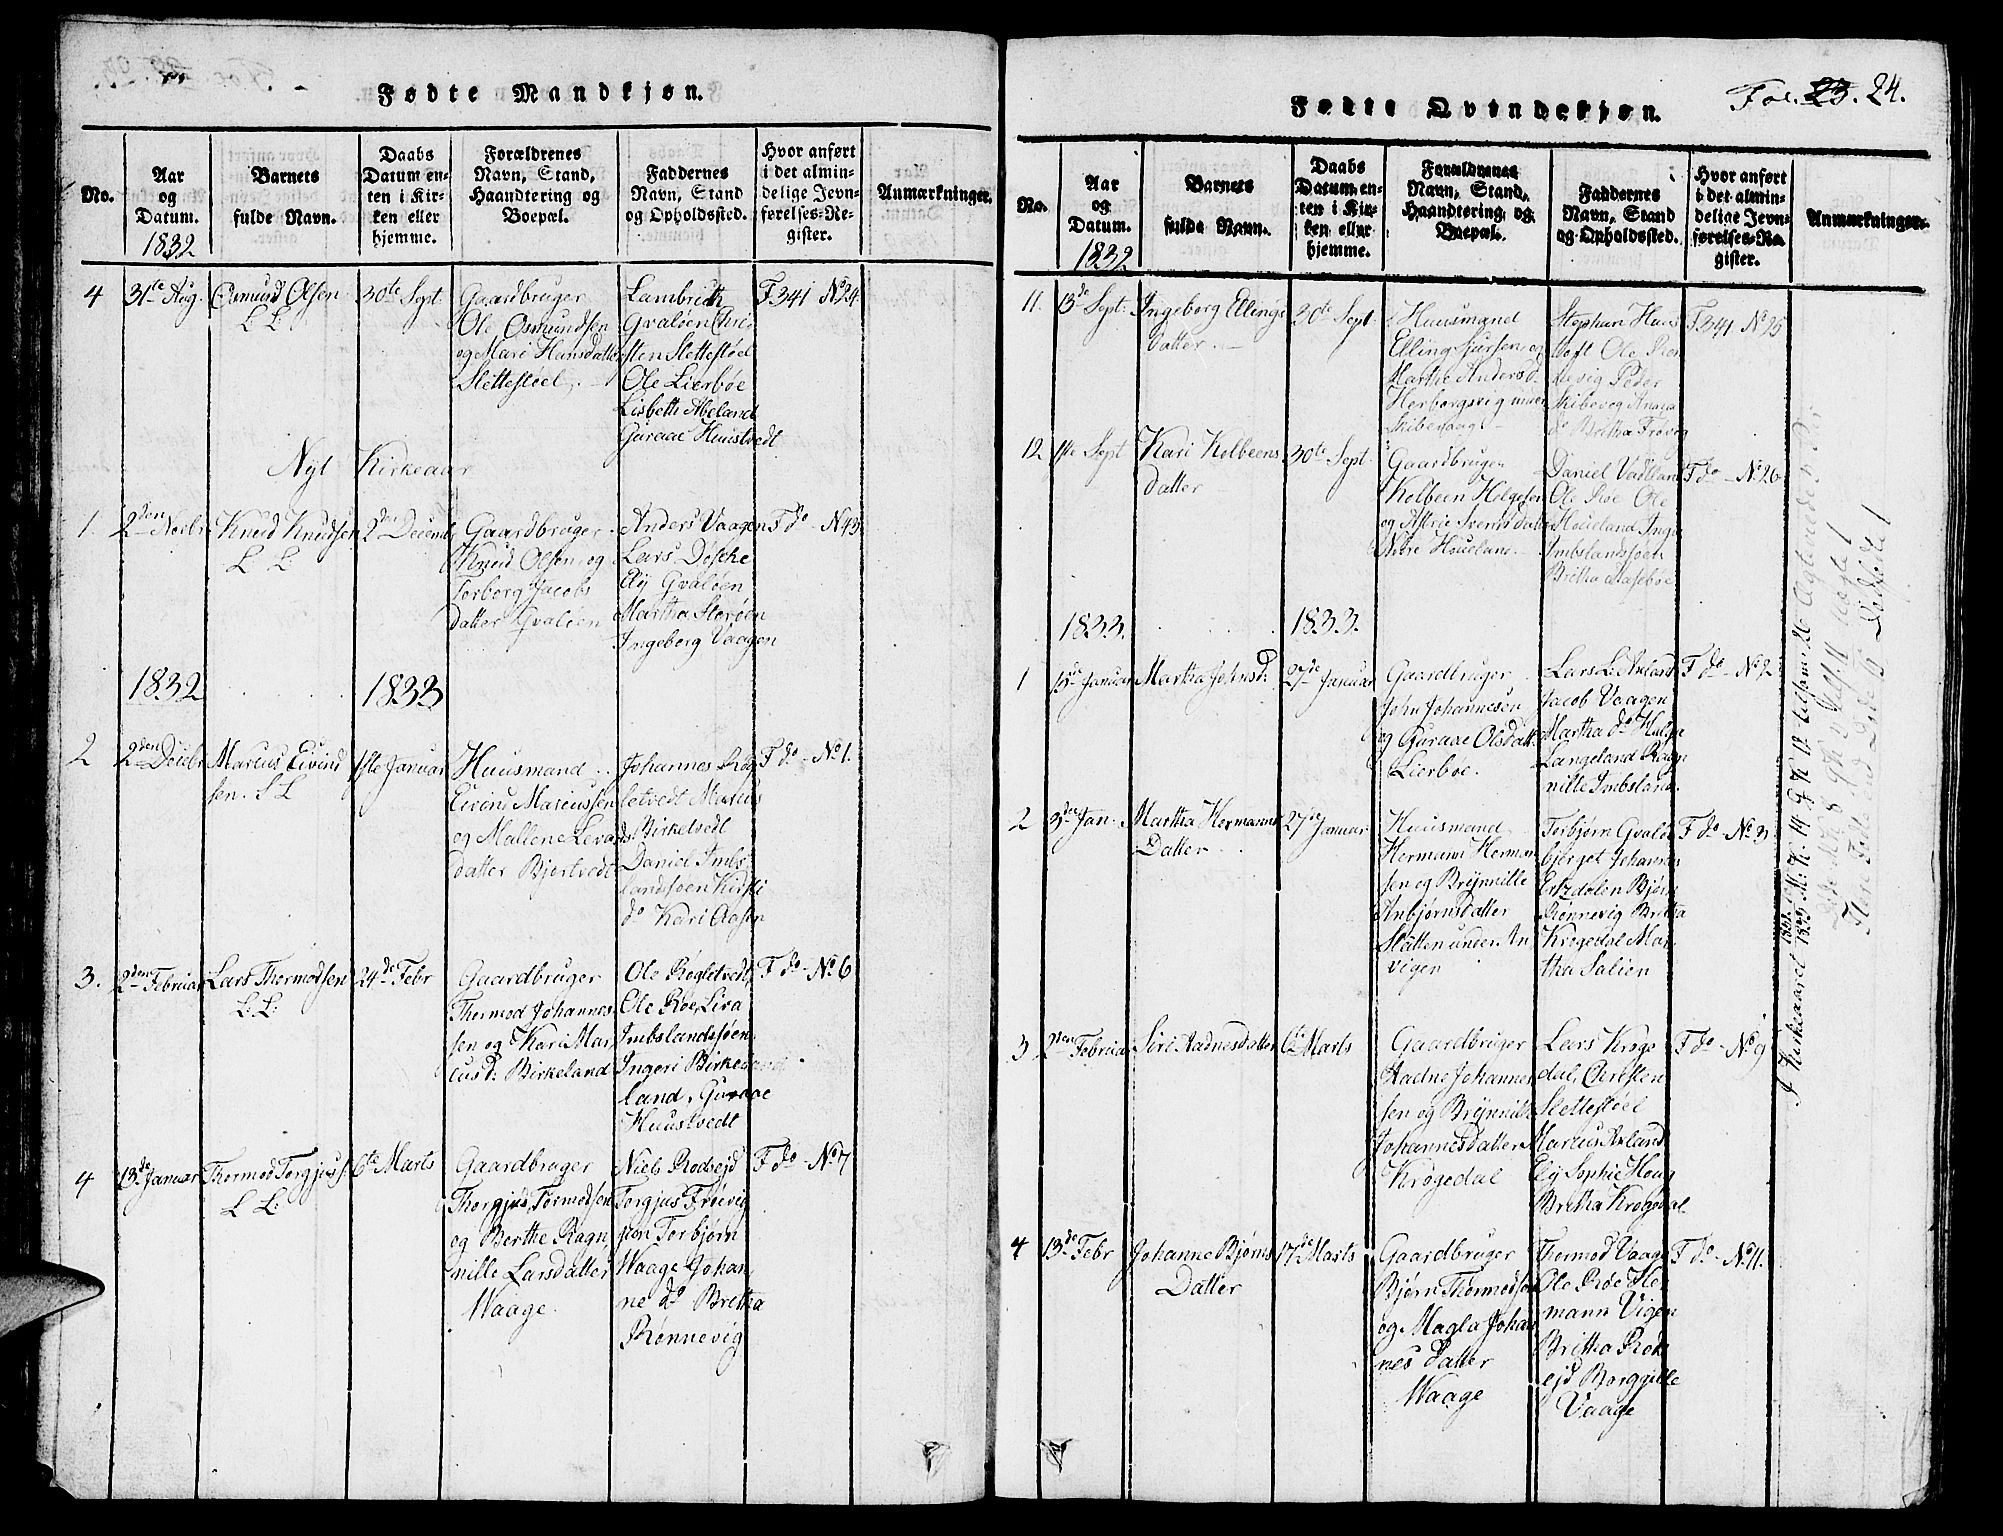 Fødte Mandkjøn.
No.
Aar
og
Datum.
1832
Barnets
fulde Navn.
Daabs
Datum en-
ten i Kir-
ken eller
hjemme.
Forældrenes
Navn, Stand,
Haandtering og
Boepæl.
Faddernes
Navn, Stand
og Opholdssted.
Hvor anført
i det almin-
delige Jevn-
førelses-Re-
gister.
Anmærkninger.
4
31te Aug.
Osmund Olsen
L L:
30te Sept
Gaardbruger
Ole Osmundsen
og Mari Hansdatter
Slettestøel.
Lambrith
Gvaløen Chri
sten Slettestøel
Ole Lierbøe
Lisbeth Abeland
Guraae Huustvedt
F. 341 No 24
Nyt Kirkeaar
1.
2den Novbr
Knud Knudsen
L L:
2den Decemb
Gaardbruger
Knud Olsen og
Torborg Jacobs
datter Gvaløen
Anders Vaagen
Lars Døske
Elj Gvaløen
Martha Sterøen
Ingeborg Vaagen
F do - No 43
1832
1833
2
2den Decbr
Marcus Eivind
sen. L L
1ste Januar
Huusmand
Eivind Marcussen
og Mallene Lera
datter Bjertvedt
Johannes Røg
letvedt Marcus
Birketvedt
Daniel Imbs
landsøen Kirsti
do Kari Aasen
F do - No 1.
3.
2den Februar
Lars Thormodsen
L: L:
24de Febr
Gaardbruger
Thormod Johannes
sen og Kari Mar
cusd: Birkeland
Ole Rogletvedt
Ole Røe, Liva
Imbslandssøen
Ingeri Birke
land, Guraae
Huustvedt
F do - No 6
4
13de Januar
Thormod Torgjuss.
L L:
6te Marts
Gaardbruger
Thorgjus Tormodsen
og Berthe Ragn
nille Larsdatter
Waage.
Niels Rodsejd
Torgjus Frøevig
Torbjørn
Waage Johan
ne do Britha
Rønnevig
F do - No 7
Fødte Qvindekjøn.
Fol. 23. 24.
No.
Aar
og
Datum.
1832
Barnets
fulde Navn.
Daabs
Datum en-
ten i Kir-
ken eller
hjemme.
Forældrenes
Navn, Stand,
Haandtering og
Boepæl.
Faddernes
Navn, Stand
og Opholdssted.
Hvor anført
i det almin-
delige Jevn-
førelses-Re-
gister.
Anmærkninger.
11.
13de Sept:
Ingeborg Ellings
datter.
30te Sept
Huusmand
Elling Sjursen og
Marthe Andersd.
Herborgsvig under
Skibevaag
Stephan Huus
toft Ole Røn
nevig Peder
Skibevog Anna
do Britha Frøvig
F 341 No 25
12
1ste Sept
Kari Kolbeens
datter
30te Sept.
Gaardbruger
Kolbeen Helgesen
og Astrie Svendsdatter
Nere Høueland.
Daniel Vadland
Ole Røe Ole
Høueland Inge
Imbslandsøen
Britha Aasebøe
F do - No 26
1833.
1833.
1
15de Januar
Martha Johnsd:
27de Januar
Gaardbruger
John Johannesen
og Guraae Olsdatt.
Lierboe.
Lars Li
Jacob Vaagen
Martha do Helge
Langeland Ragn
nille Imbsland
F do - No 2
2
3den Jan.
Martha Hermanns
Datter
27de Januar
Huusmand
Hermann Herman
sen og Brynnille
Anbjørnsdatter
Slatten under An
vigen
Torbjørn Gvalø
bjerget Johannes
Erkdalen Bjørn
Rønnevig Britha
Krogedal Mar
tha Salien
F do - No 3
3
2den Februar
Siri Aadnesdatter
6te Marts
Gaardbruger
Aadne Johannes
sen og Brynnille
Johannesdatter
Krøgedal
Lars Kroge
dal, Christen
Slettestøel
Marcus Axland
Elj Sophie Houg
Britha Krogedal
F do - No 9
4
13de Febr
Johanne Bjørns
Datter
17de Marts
Gaardbruger
Bjørn Thormodsen
og Magla Johan
nes datter
Waage
Thormod Vaage
Ole Røe Her
mann Vigen
Britha Rods
ejd Borggille
Vaage
F do - No 11.